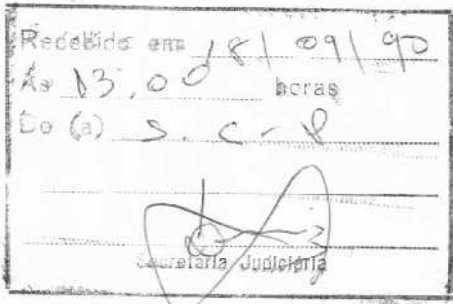 Recebido em 18/09/90
Às 13,00 horas
Do (a) S. C - P
Secretaria Judiciária